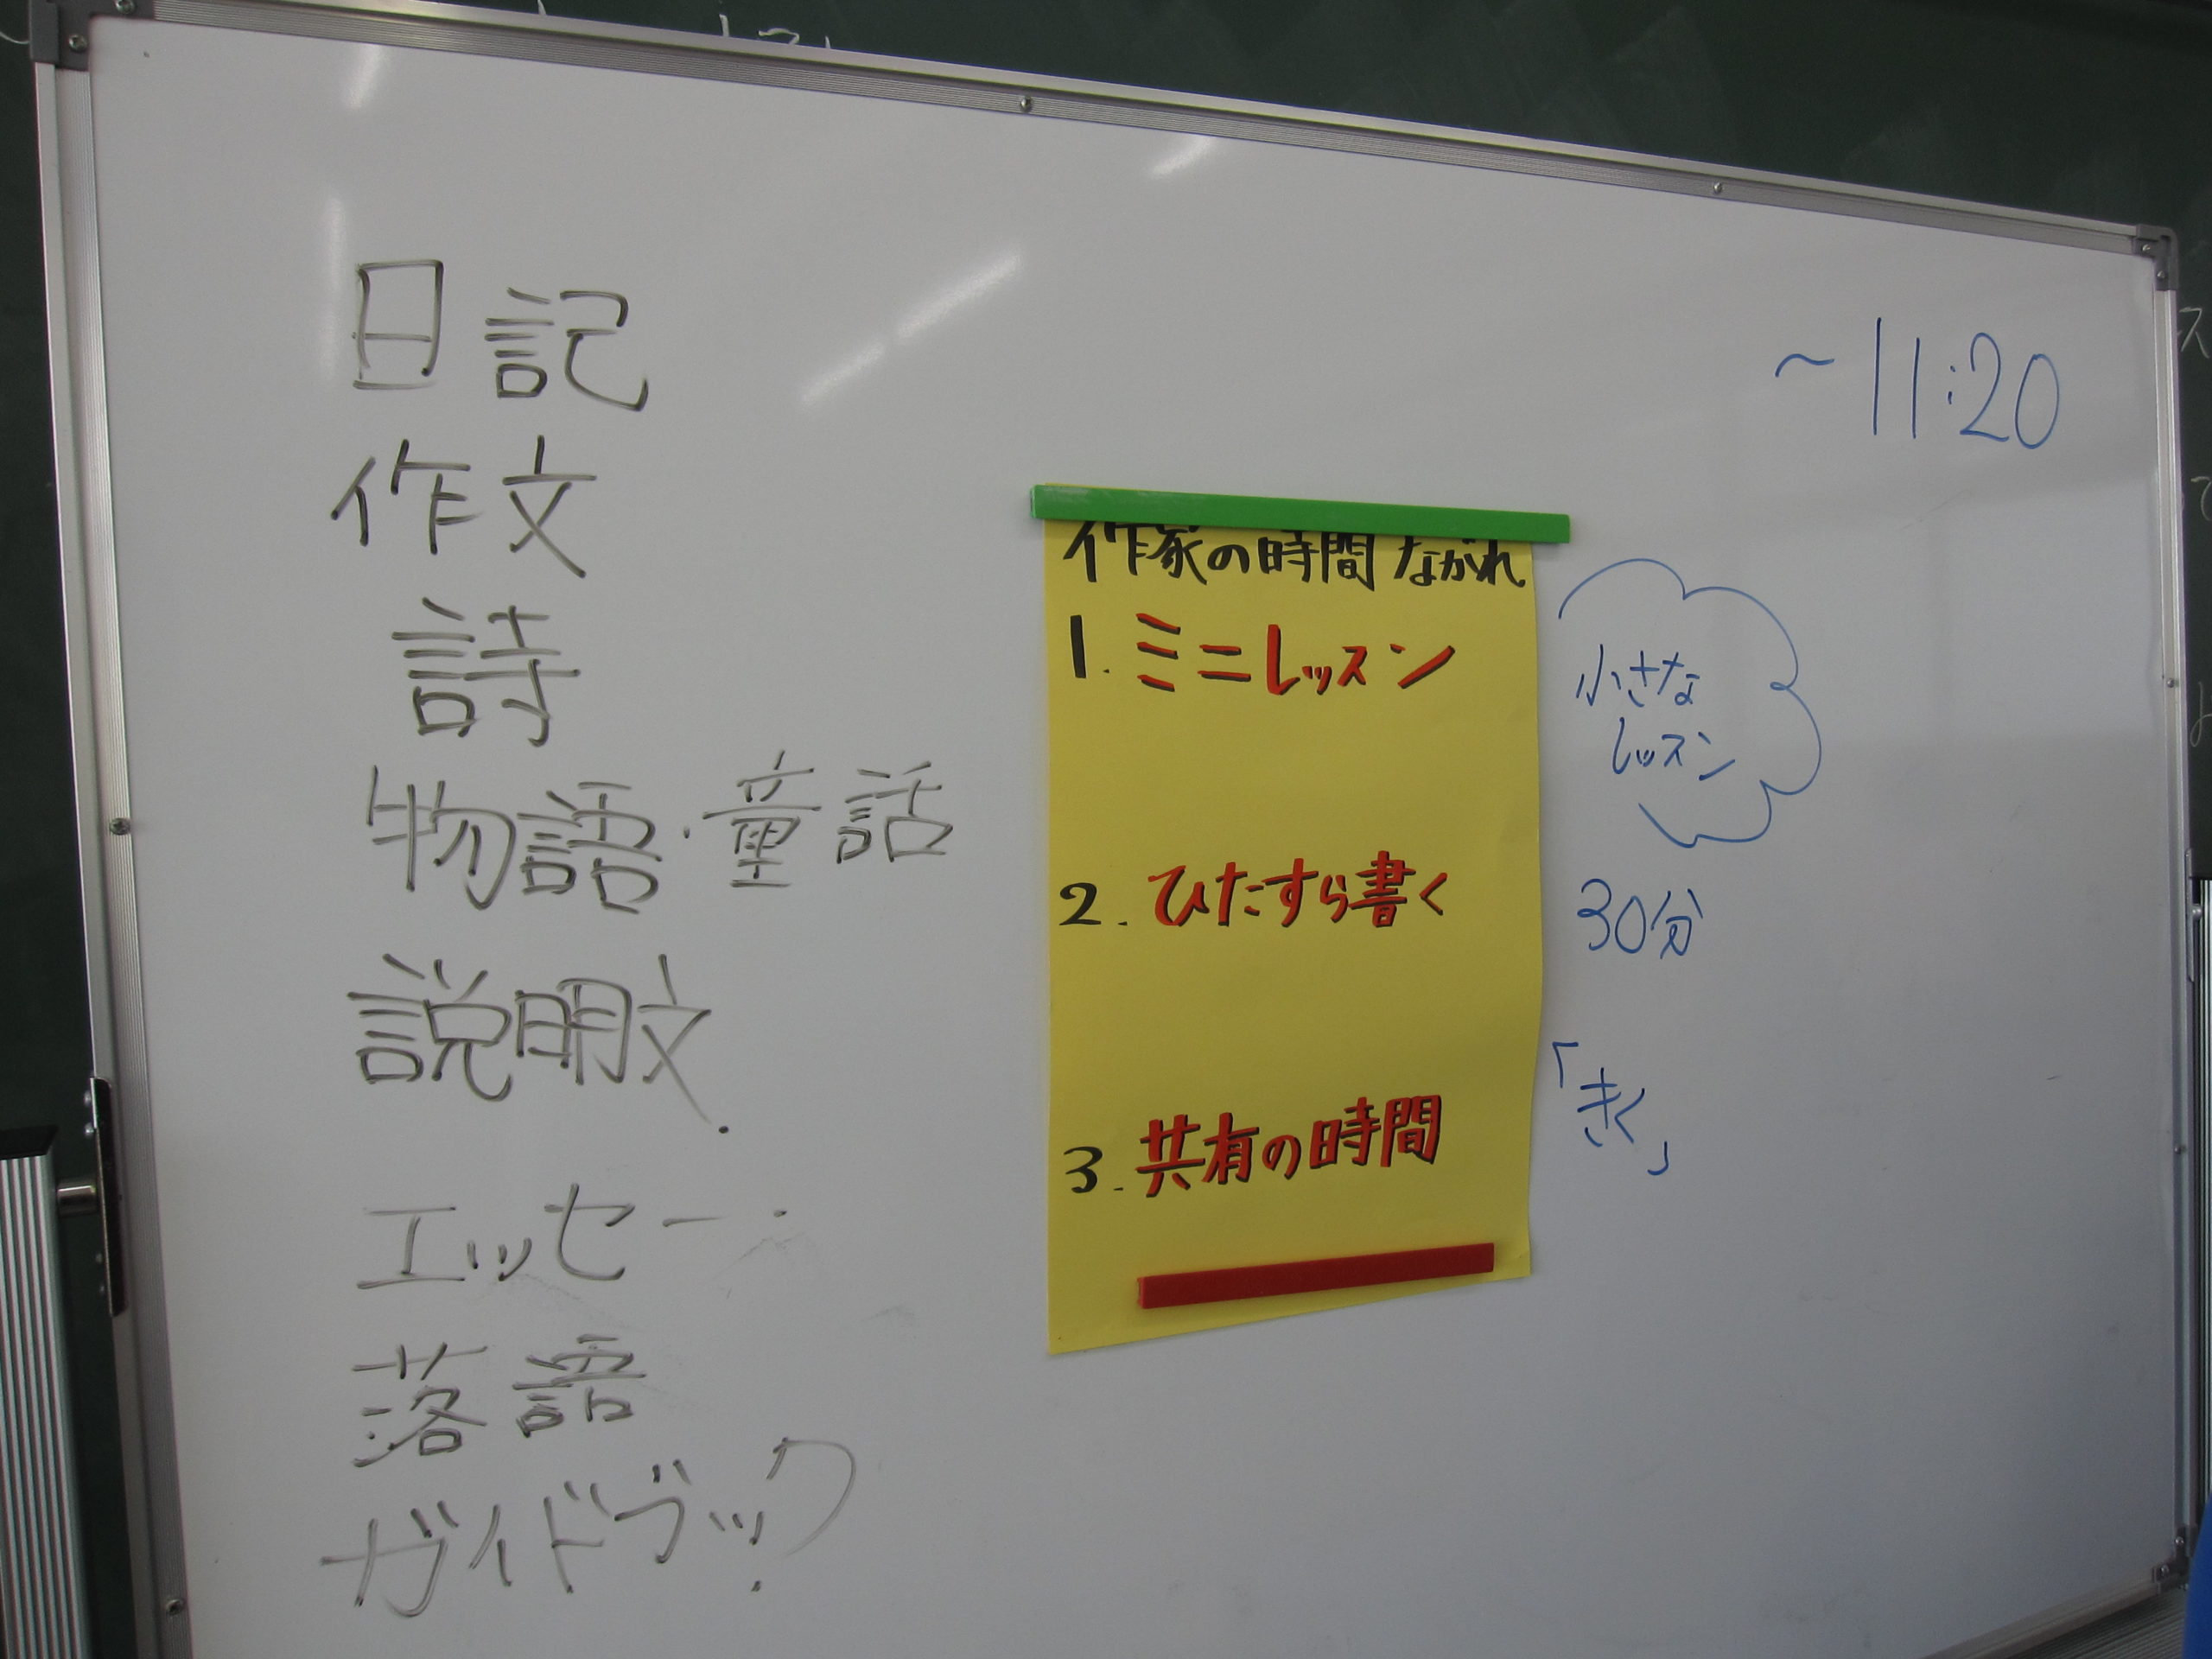 日記
作文
詩
物語・童話
説明文
エッセー
落語
ガイドブック
~11:20
作家の時間 ながれ
1. ミニレッスン
小さな
レッスン
2. ひたすら書く
30分
3. 共有の時間
「きく」